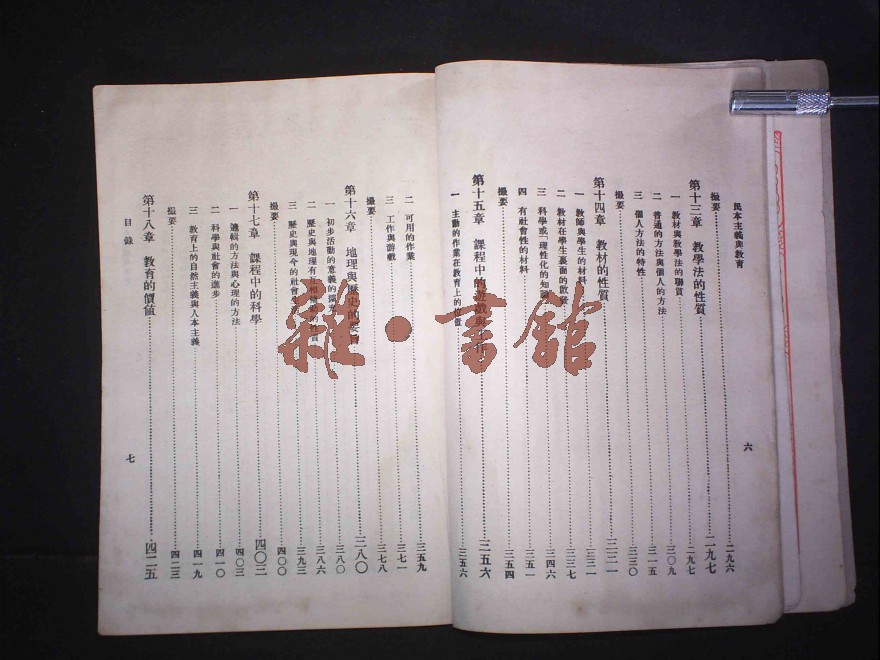 民本主義與教育
六
撮要 二九六
第十三章 教學法的性質 二九七
一 教材與教學法的聯貫 二九七
二 普通的方法與個人的方法 三〇九
三 個人方法的特性 三一五
撮要 三三〇
第十四章 教材的性質
一 教師與學生的教材 三三一
二 教材在學生裏面的 三三七
三 科學或理性化的知識 三四六
四 有社會性的材料 三五一
撮要 三五四
第十五章 課程中的遊戲與工作 三五六
一 主動的作業在教育上的位置 三五六
二 可用的作業 三五九
三 工作與游戲 三七一
撮要 三七八
第十六章 地理與歷史的 三八〇
一 初步活動的意義的 三八〇
二 歷史與地理有互相 三八六
三 歷史與現今的社會生 三九三
撮要 四〇〇
第十七章 課程中的科學 四〇三
一 邏輯的方法與心理的方法 四〇三
二 科學與社會的進步 四一〇
三 教育上的自然主義與人本主義 四一九
撮要 四二三
第十八章 教育的價值 四二五
目錄
七
雜·書館